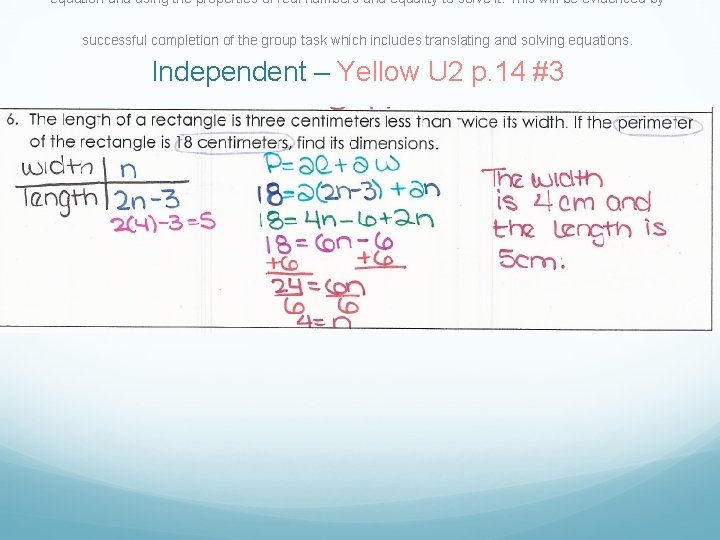 equation and using the properties of real numbers and equality to solve it. This will be evidenced by
successful completion of the group task which includes translating and solving equations.
Independent – Yellow U2 p.14 #3
6. The length of a rectangle is three centimeters less than twice its width. If the perimeter
of the rectangle is 18 centimeters, find its dimensions.
width n
length 2n-3
2(4)-3=5
P=2l+2w
18=2(2n-3)+2n
18=4n-6+2n
18=6n-6
+6 +6
24=6n
6 6
4=n
The width
is 4cm and
the length is
5cm.